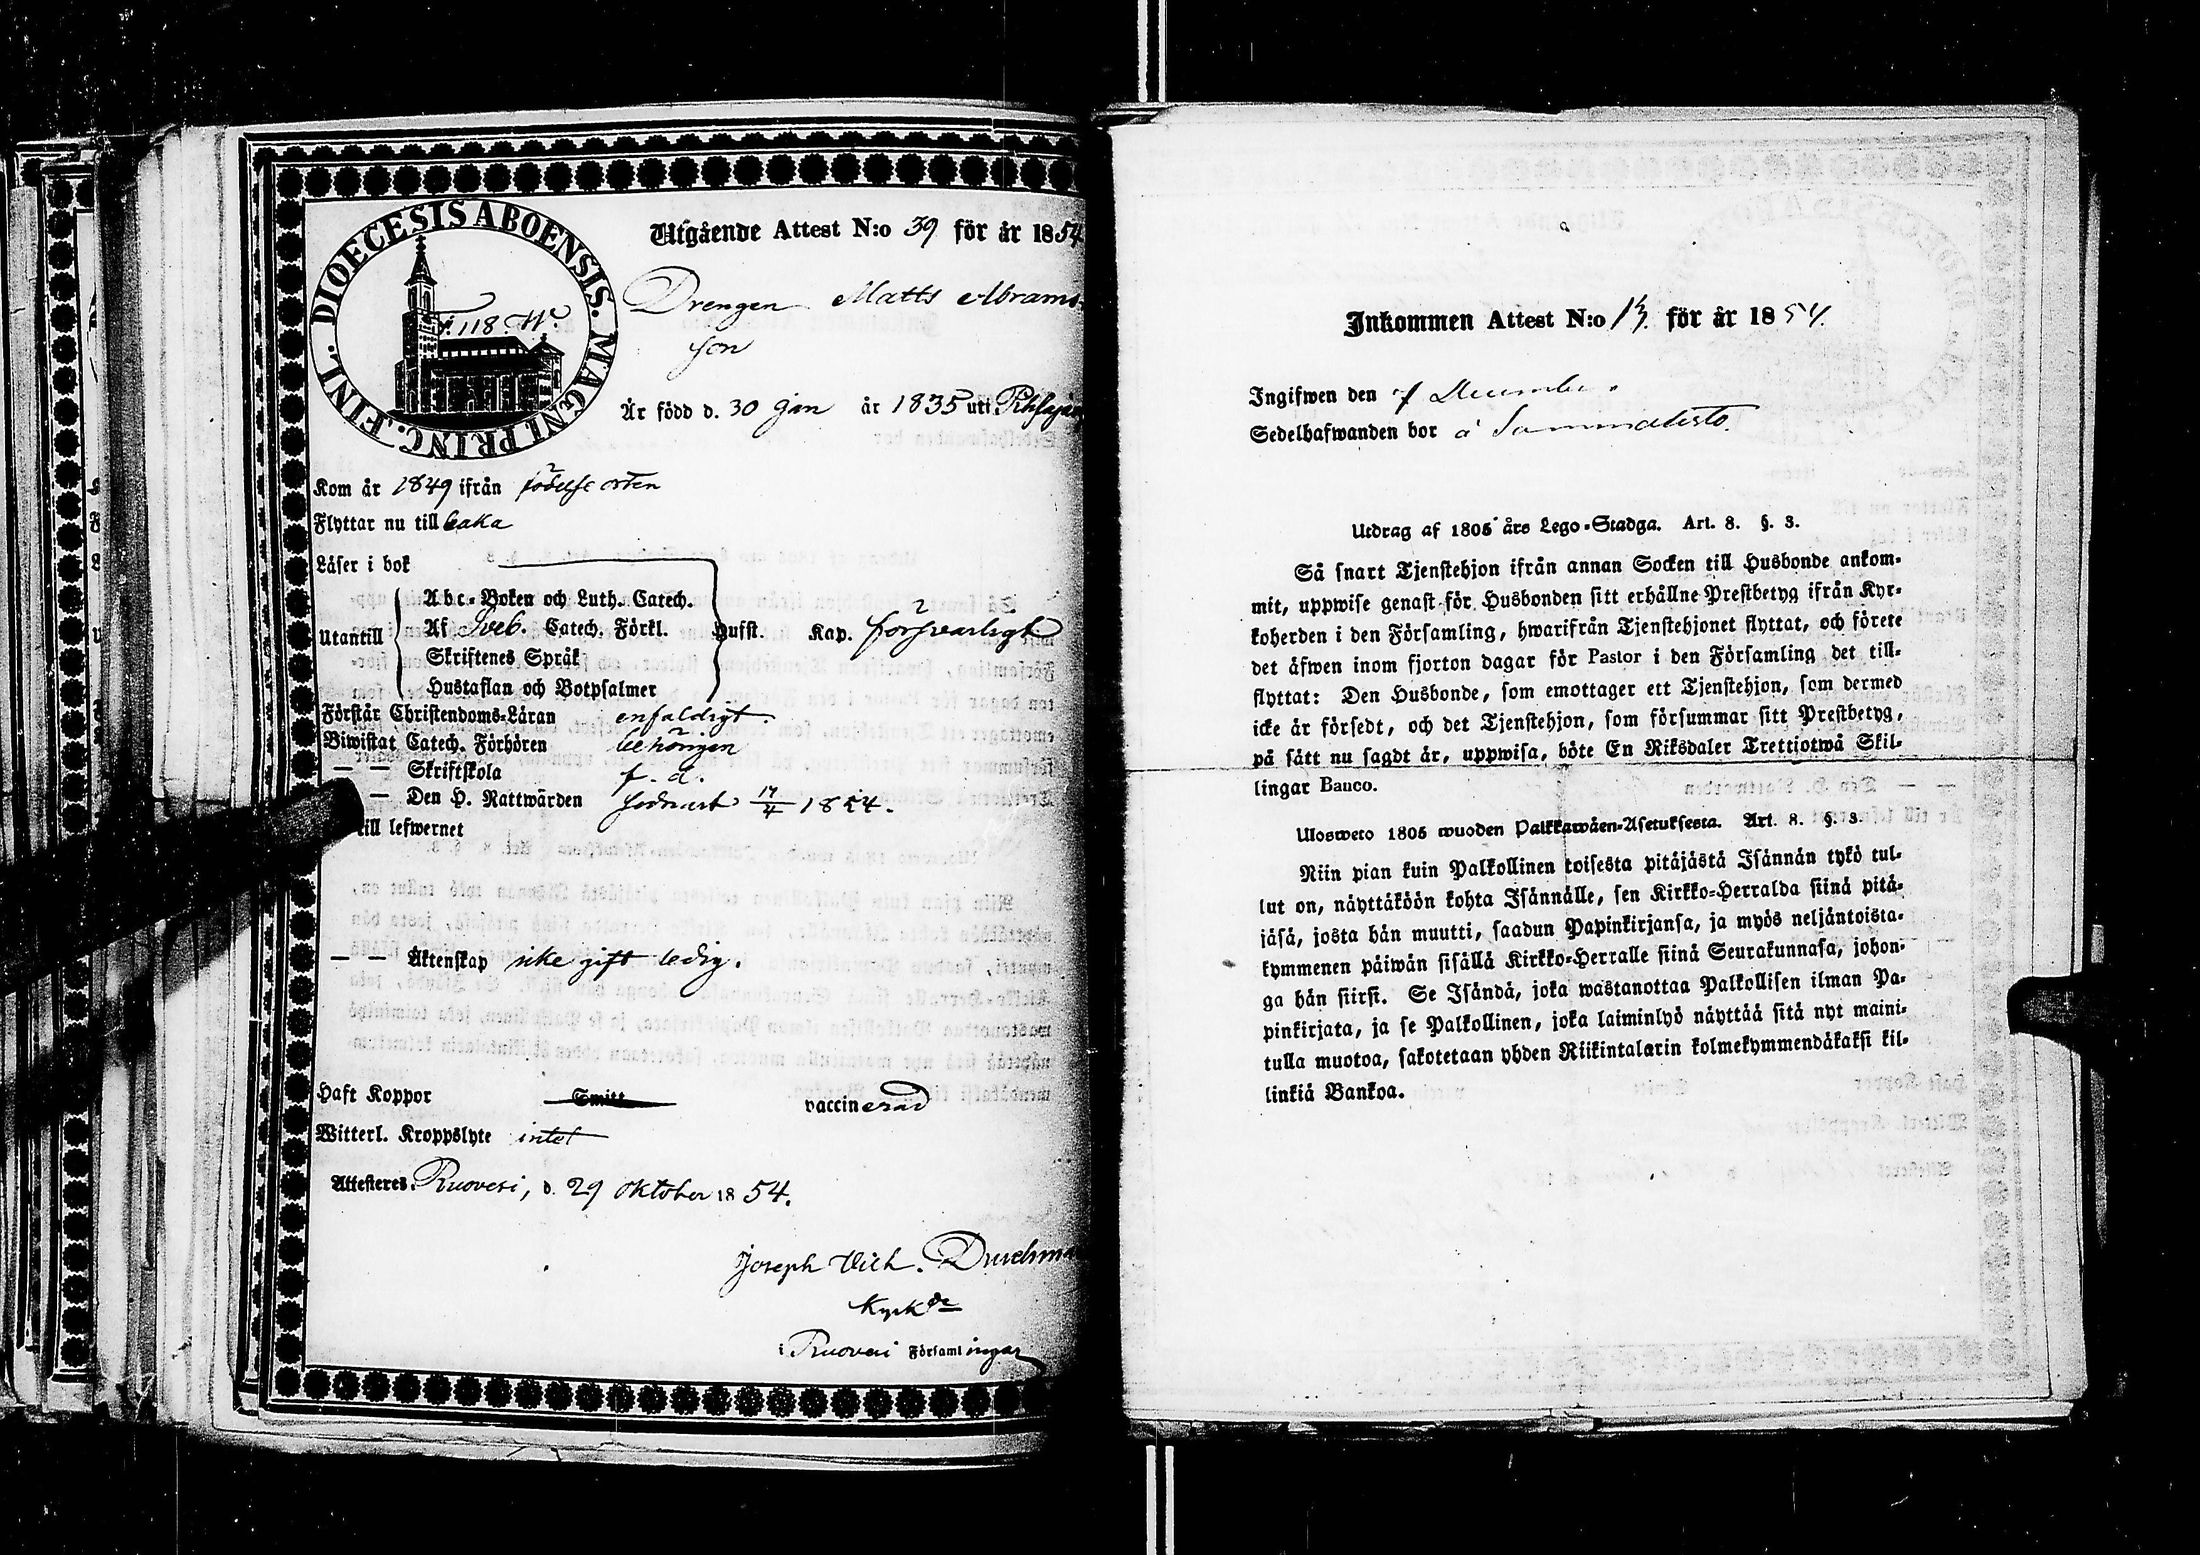 DIOECESIS ABOENSIS. MAGNI PRINC. FINL.
F. 118. W.
Utgående Attest N:o 39 för år 1854
Drengen Matts Abrams-
son
Är född d. 30 Jan år 1835 uti
Kom år 1849 ifrån födelse orten
Flyttar nu till baka
Läser i bok
Utantill
Abc-Boken och Luth. Catech.
Af Sveb. Catech. Förkl. Hufst. Kap. försvarligt
Skriftenes Språk
Hustaflan och Botpsalmer
Förstår Christendoms-Läran enfaldigt.
Biwistat Catech. Förhören behörigen
— — Skriftskola f. d.
— Den H. Nattwarden sednast 17/4 1854.
till lefwernet
— — Äktenskap icke gift ledig.
Haft Koppor Smitt vaccinerad
Witterl. Kroppslyte intet
Attesteres. Ruovesi, d. 29 Oktober 1854.
Joseph Vilh.
Kyrkhde
i Ruovesi Församlingar
Inkommen Attest N:o 13. för år 1854.
Ingifwen den 7 December
Sedelhafwanden bor å
Utdrag af 1805 års Lego-Stadga. Art. 8. §. 3.
Så snart Tjenstehjon ifrån annan Socken till Husbonde ankom-
mit, uppwise genast för Husbonden sitt erhållne Prestbetyg ifrån Kyr-
koherden i den Församling, hwarifrån Tjenstehjonet flyttat, och förete
det äfwen inom fjorton dagar för Pastor i den Församling det till-
flyttat: Den Husbonde, som emottager ett Tjenstehjon, som dermed
icke är försedt, och det Tjenstehjon, som försummar sitt Prestbetyg,
på sätt nu sagdt är, uppwisa, böte En Riksdaler Trettiotwå Skil-
lingar Banco.
Ulosweto 1805 wuoden Palkkawäen-Asetuksesta. Art. 8. §. 3.
Niin pian kuin Palkollinen toisesta pitäjästä Isännän tykö tul-
lut on, näyttäköön kohta Isännälle, sen Kirkko-Herralda siinä pitä-
jäsä, josta hän muutti, saadun Papinkirjansa, ja myös neljäntoista-
kymmenen päiwän sisällä Kirkko-Herralle siinä Seurakunnasa, johon-
ga hän siirsi. Se Isändä, joka wastanottaa Palkollisen ilman Pa-
pinkirjata, ja se Palkollinen, joka laiminlyö näyttää sitä nyt maini-
tulla muotoa, sakotetaan yhden Riikintalarin kolmekymmendäkaksi kil-
linkiä Bankoa.